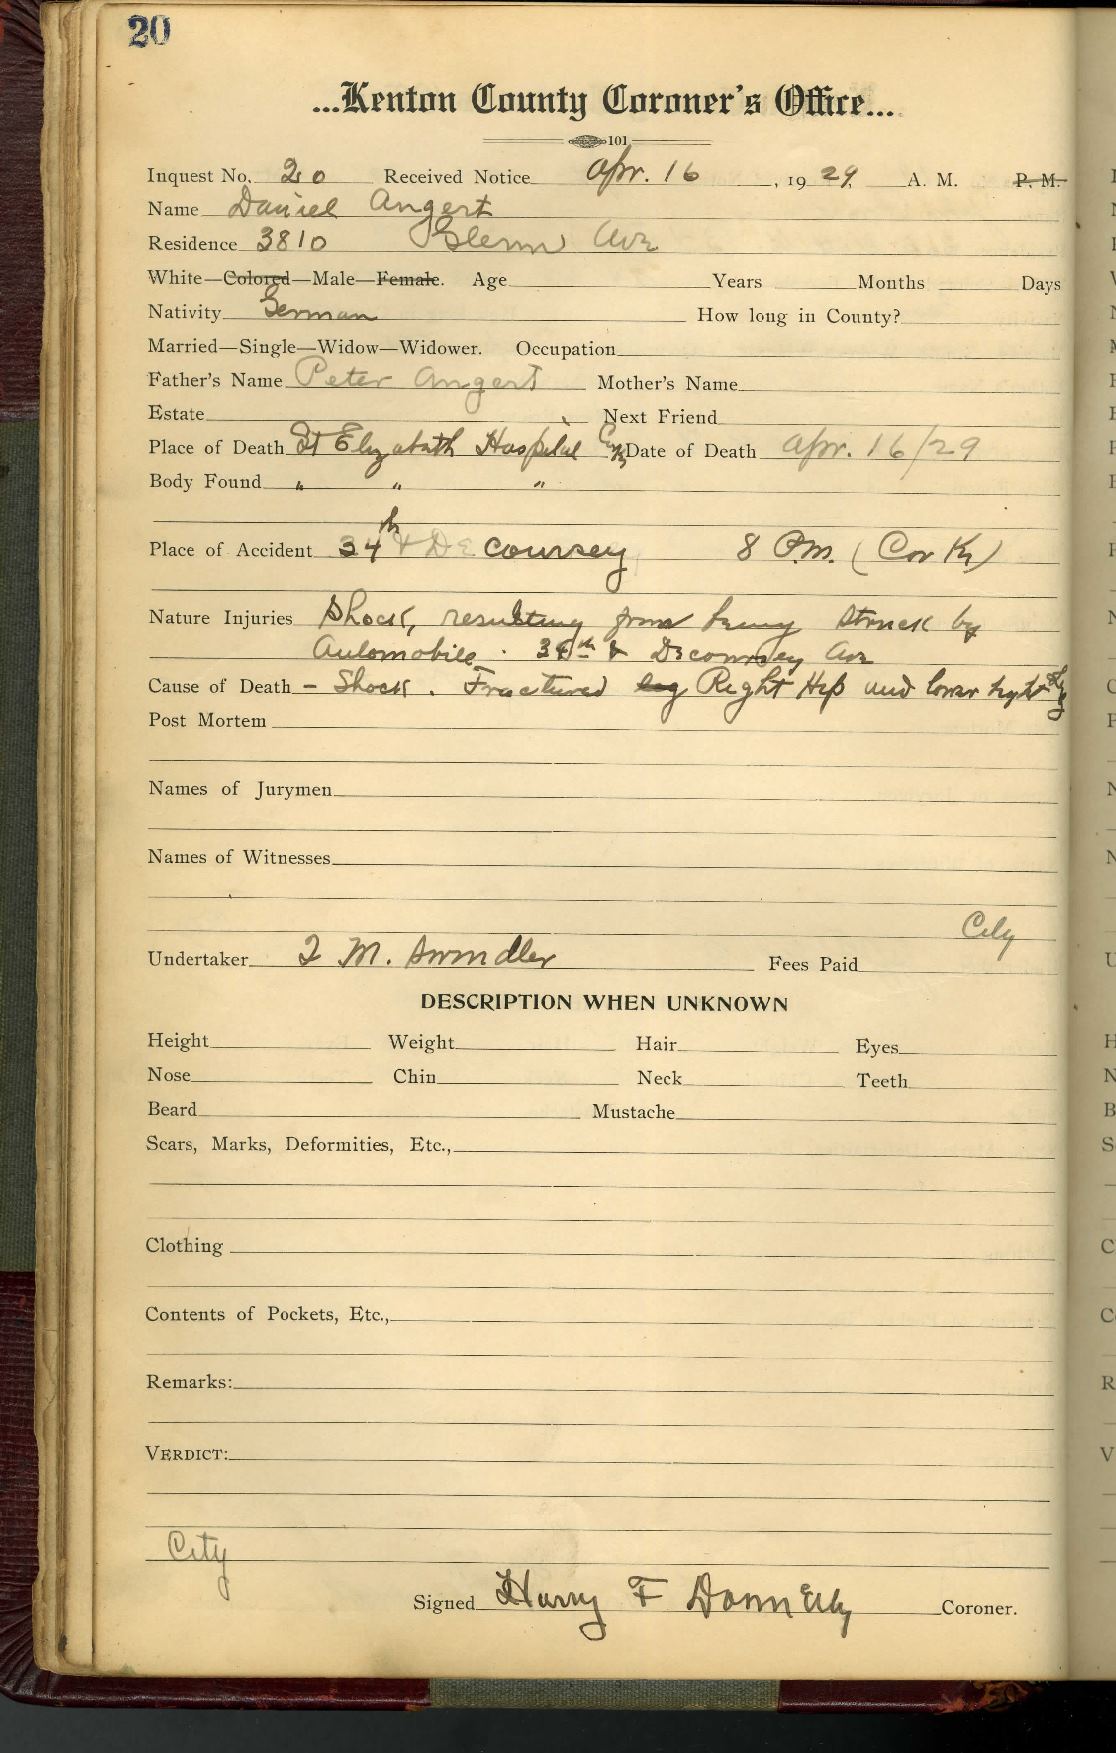 20
...Kenton County Coroner's Office...
101
Inquest No. 20 Received Notice Apr. 16, 1929 A. M. P. M.
Name Daniel Angert
Residence 3810 Glenn Ave
White—Colored—Male—Female. Age Years Months Days
Nativity German How long in County?
Married—Single—Widow—Widower. Occupation
Father's Name Peter Angert Mother's Name
Estate Next Friend
Place of Death St Elizabath Hospital Date of Death Apr. 16/29
Body Found " " "
Place of Accident 34th & DeCoursey 8 P.M. (Cov Ky)
Nature Injuries Shock, resulting from being struck by
Automobile. & Decoursey Ave
Cause of Death - Shock. Fractured leg Right Hip and lower right leg
Post Mortem
Names of Jurymen
Names of Witnesses
City
Undertaker M. Swindler Fees Paid
DESCRIPTION WHEN UNKNOWN
Height Weight Hair Eyes
Nose Chin Neck Teeth
Beard Mustache
Scars, Marks, Deformities, Etc.,
Clothing
Contents of Pockets, Etc.,
Remarks:
VERDICT:
City
Signed Harry F Donnelly Coroner.